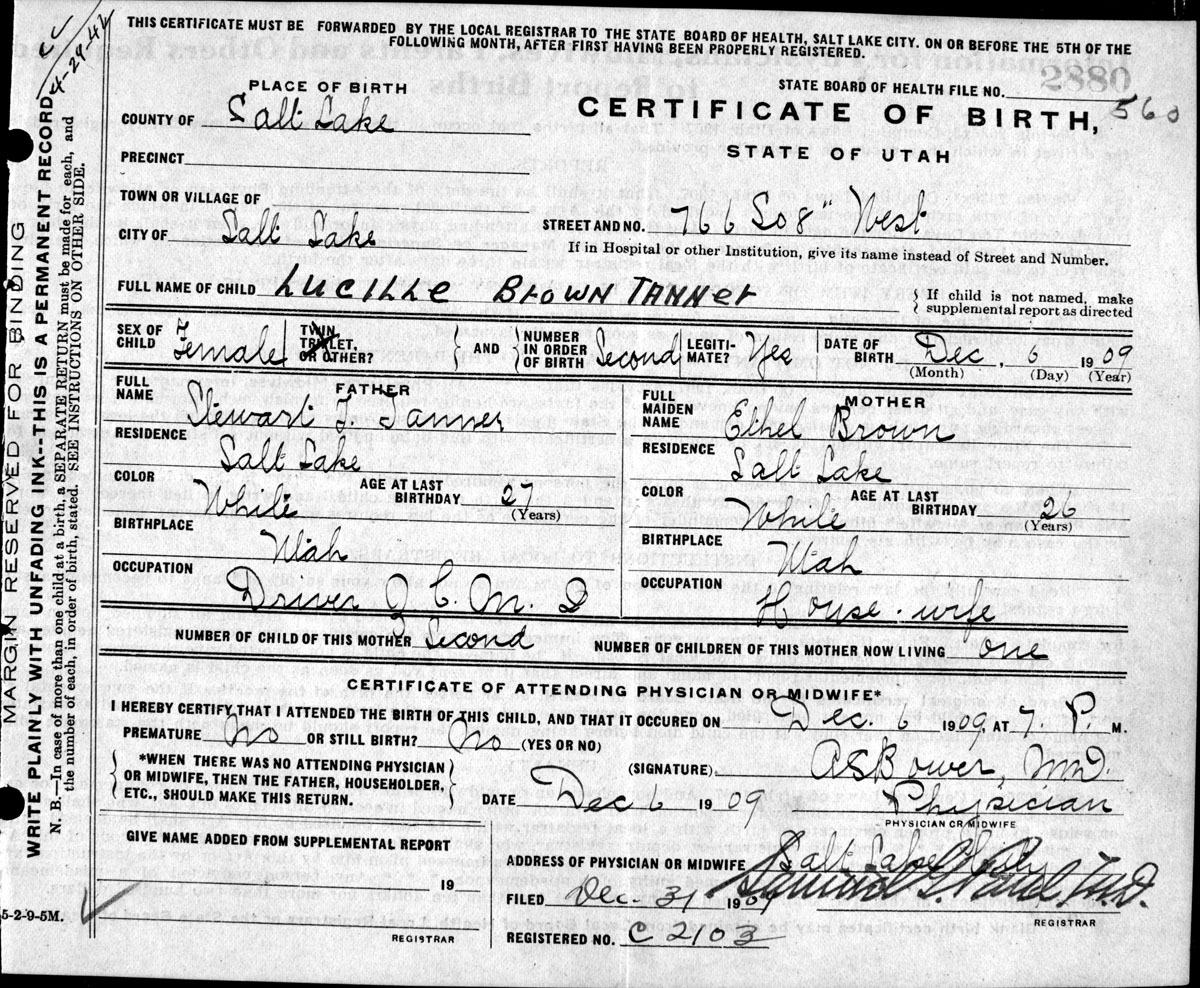 THIS CERTIFICATE MUST BE FORWARDED BY THE LOCAL REGISTRAR TO THE STATE BOARD OF HEALTH, SALT LAKE CITY. ON OR BEFORE THE 5TH OF THE
FOLLOWING MONTH, AFTER FIRST HAVING BEEN PROPERLY REGISTERED.
4-29-42
MARGIN RESERVED FOR BINDING
WRITE PLAINLY WITH UNFADING INK--THIS IS A PERMANENT RECORD
N. B.—In case of more than one child at a birth, a SEPARATE RETURN must be made for each, and
the number of each, in order of birth, stated. SEE INSTRUCTIONS ON OTHER SIDE.
2880
PLACE OF BIRTH
STATE BOARD OF HEALTH FILE NO. 560
COUNTY OF Salt Lake
CERTIFICATE OF BIRTH,
PRECINCT
STATE OF UTAH
TOWN OR VILLAGE OF
CITY OF Salt Lake
STREET AND NO. 766 So 8" West
If in Hospital or other Institution, give its name instead of Street and Number.
FULL NAME OF CHILD LUCILLE BROWN TANNER
If child is not named, make
supplemental report as directed
SEX OF CHILD Female
TWIN, TRIPLET, OR OTHER?
AND NUMBER IN ORDER OF BIRTH Second
LEGITI-MATE? Yes
DATE OF BIRTH Dec, 6 1909
(Month) (Day) (Year)
FATHER
FULL NAME Stewart T Tanner
RESIDENCE Salt Lake
COLOR White
AGE AT LAST BIRTHDAY 27 (Years)
BIRTHPLACE Utah
OCCUPATION Driver Z. C. M. I
MOTHER
FULL MAIDEN NAME Ethel Brown
RESIDENCE Salt Lake
COLOR White
AGE AT LAST BIRTHDAY 26 (Years)
BIRTHPLACE Utah
OCCUPATION House-wife
NUMBER OF CHILD OF THIS MOTHER Second
NUMBER OF CHILDREN OF THIS MOTHER NOW LIVING one
CERTIFICATE OF ATTENDING PHYSICIAN OR MIDWIFE*
I HEREBY CERTIFY THAT I ATTENDED THE BIRTH OF THIS CHILD, AND THAT IT OCCURED ON Dec. 6 1909, AT 7. P. M.
PREMATURE No OR STILL BIRTH? No (YES OR NO)
*WHEN THERE WAS NO ATTENDING PHYSICIAN
OR MIDWIFE, THEN THE FATHER, HOUSEHOLDER,
ETC., SHOULD MAKE THIS RETURN.
(SIGNATURE). A S Bower, M.D.
DATE Dec 6 1909
Physician
PHYSICIAN OR MIDWIFE
GIVE NAME ADDED FROM SUPPLEMENTAL REPORT
19
REGISTRAR
ADDRESS OF PHYSICIAN OR MIDWIFE Salt Lake City
FILED Dec. 31 1909
M.D.
REGISTRAR
REGISTERED NO. C 2103
5-2-9-5M.